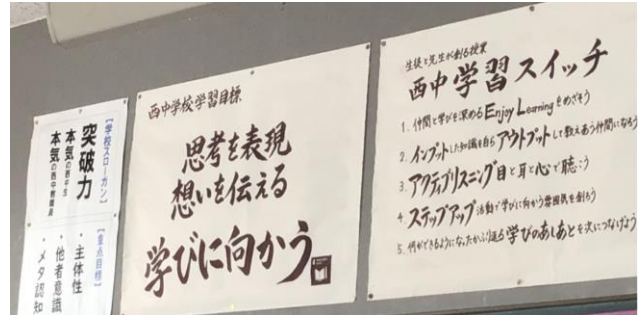 【学校スローガン】
突破力
本気の西中生
本気の西中教職員
【重点目標】
・主体性
・他者意識
・メタ認知
西中学校学習目標
思考を表現
想いを伝える
学びに向かう
生徒と先生が創る授業
西中学習スイッチ
1. 仲間と学びを深めるEnjoy Learningをめざそう
2. インプットした知識を自らアウトプットして教えあう仲間になろう
3. アクティブリスニング 目と耳と心で聴こう
4. ステップアップ活動で学びに向かう雰囲気を創ろう
5. 何ができるようになったかふり返る学びのあしあとを次につなげよう